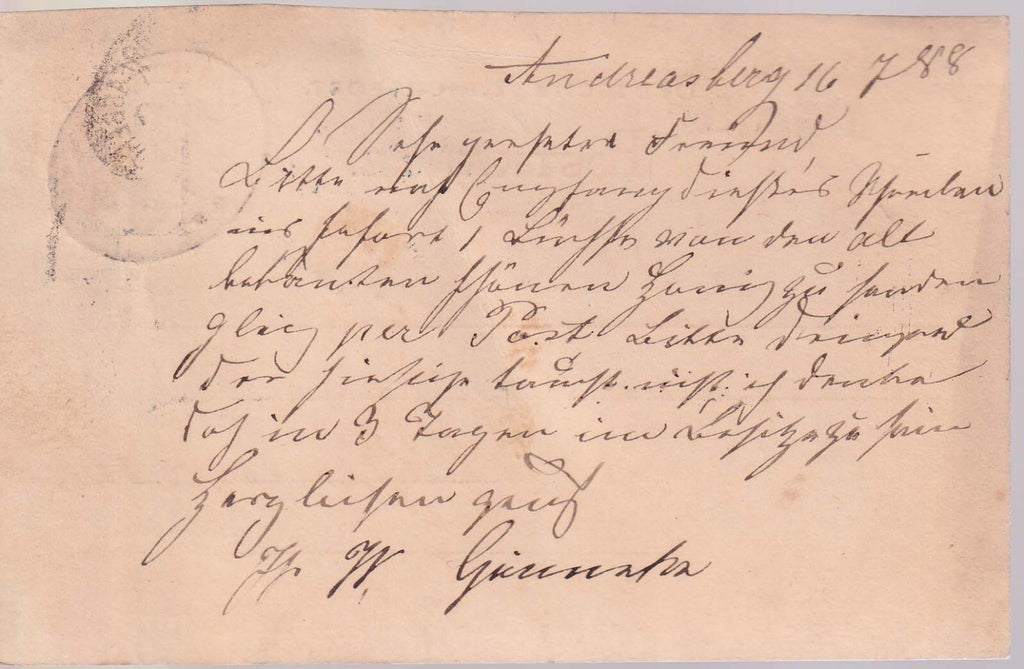 Andreasberg 16 7 88
Sehr geehrter Freund,
Bitte nach Empfang dieses Schreiben
mir sofort 1 Büchse von den alt
bekanten schönen Honig zu senden
gleich per Post Bitte dringend
der hiesige taucht nicht ich denke
doch in 3 Tagen im Besitze zu sein
Herzlichen gruß
Ihr W.